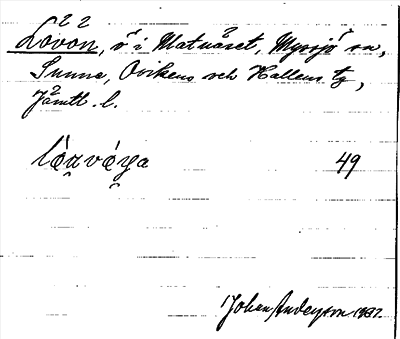 Lövön, ö i Matnäset, Myssjö sn,
Sunne, Ovikens och Hallens tg,
Jämtl. l.
49
Johan Anderson 1937.